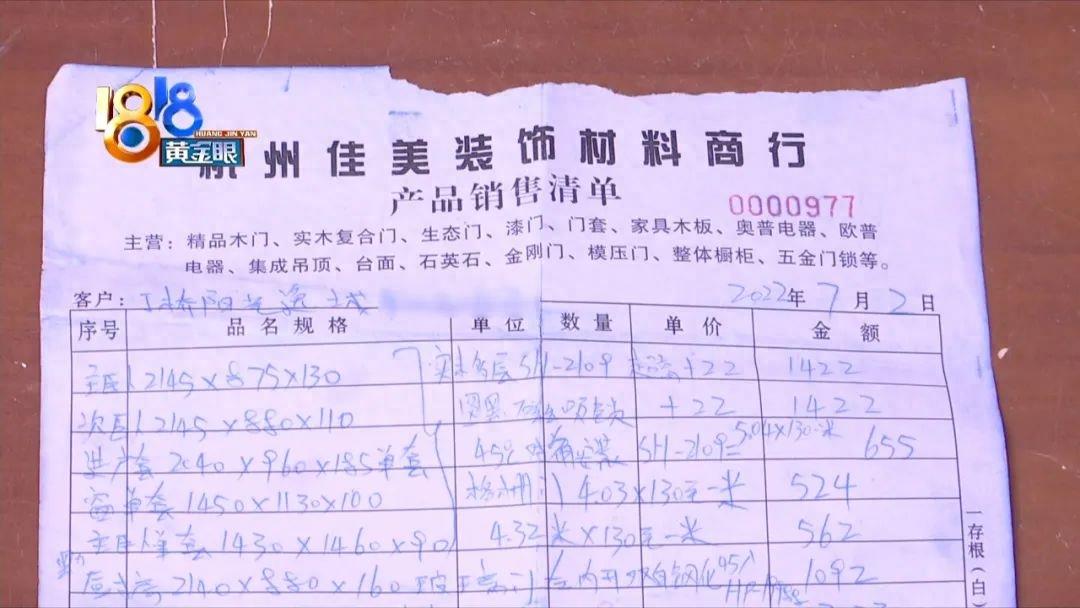 1818
HUANG JIN YAN
黄金眼
杭州佳美装饰材料商行
产品销售清单
0000977
主营：精品木门、实木复合门、生态门、漆门、门套、家具木板、奥普电器、欧普
电器、集成吊顶、台面、石英石、金刚门、模压门、整体橱柜、五金门锁等。
客户：
2022年7月2日
序号 品名规格 单位 数量 单价 金额
2145×875×130 SH-2109 +22 1422
2145×880×110 +22 1422
进户套 2040×960×185单套 45° SH-2109 5.04×130元一米 655
窗单套 1450×1130×100 403×130元一米 524
单套 1430×1460×90 4.32米×130元一米 562
2140×880×160 钢化 1092
存根（白）